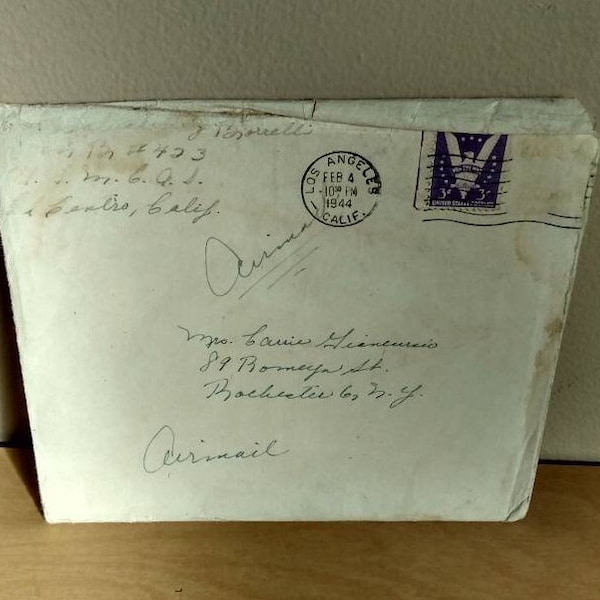 J Borrelli
#423
M. C. A. S.
El Centro, Calif.
LOS ANGELES
FEB 4
1944
CALIF.
3¢ 3¢
UNITED STATES POSTAGE
Airmail
Mrs. Carrie
89 Romeyn St.
Rochester 6, N. Y.
Airmail